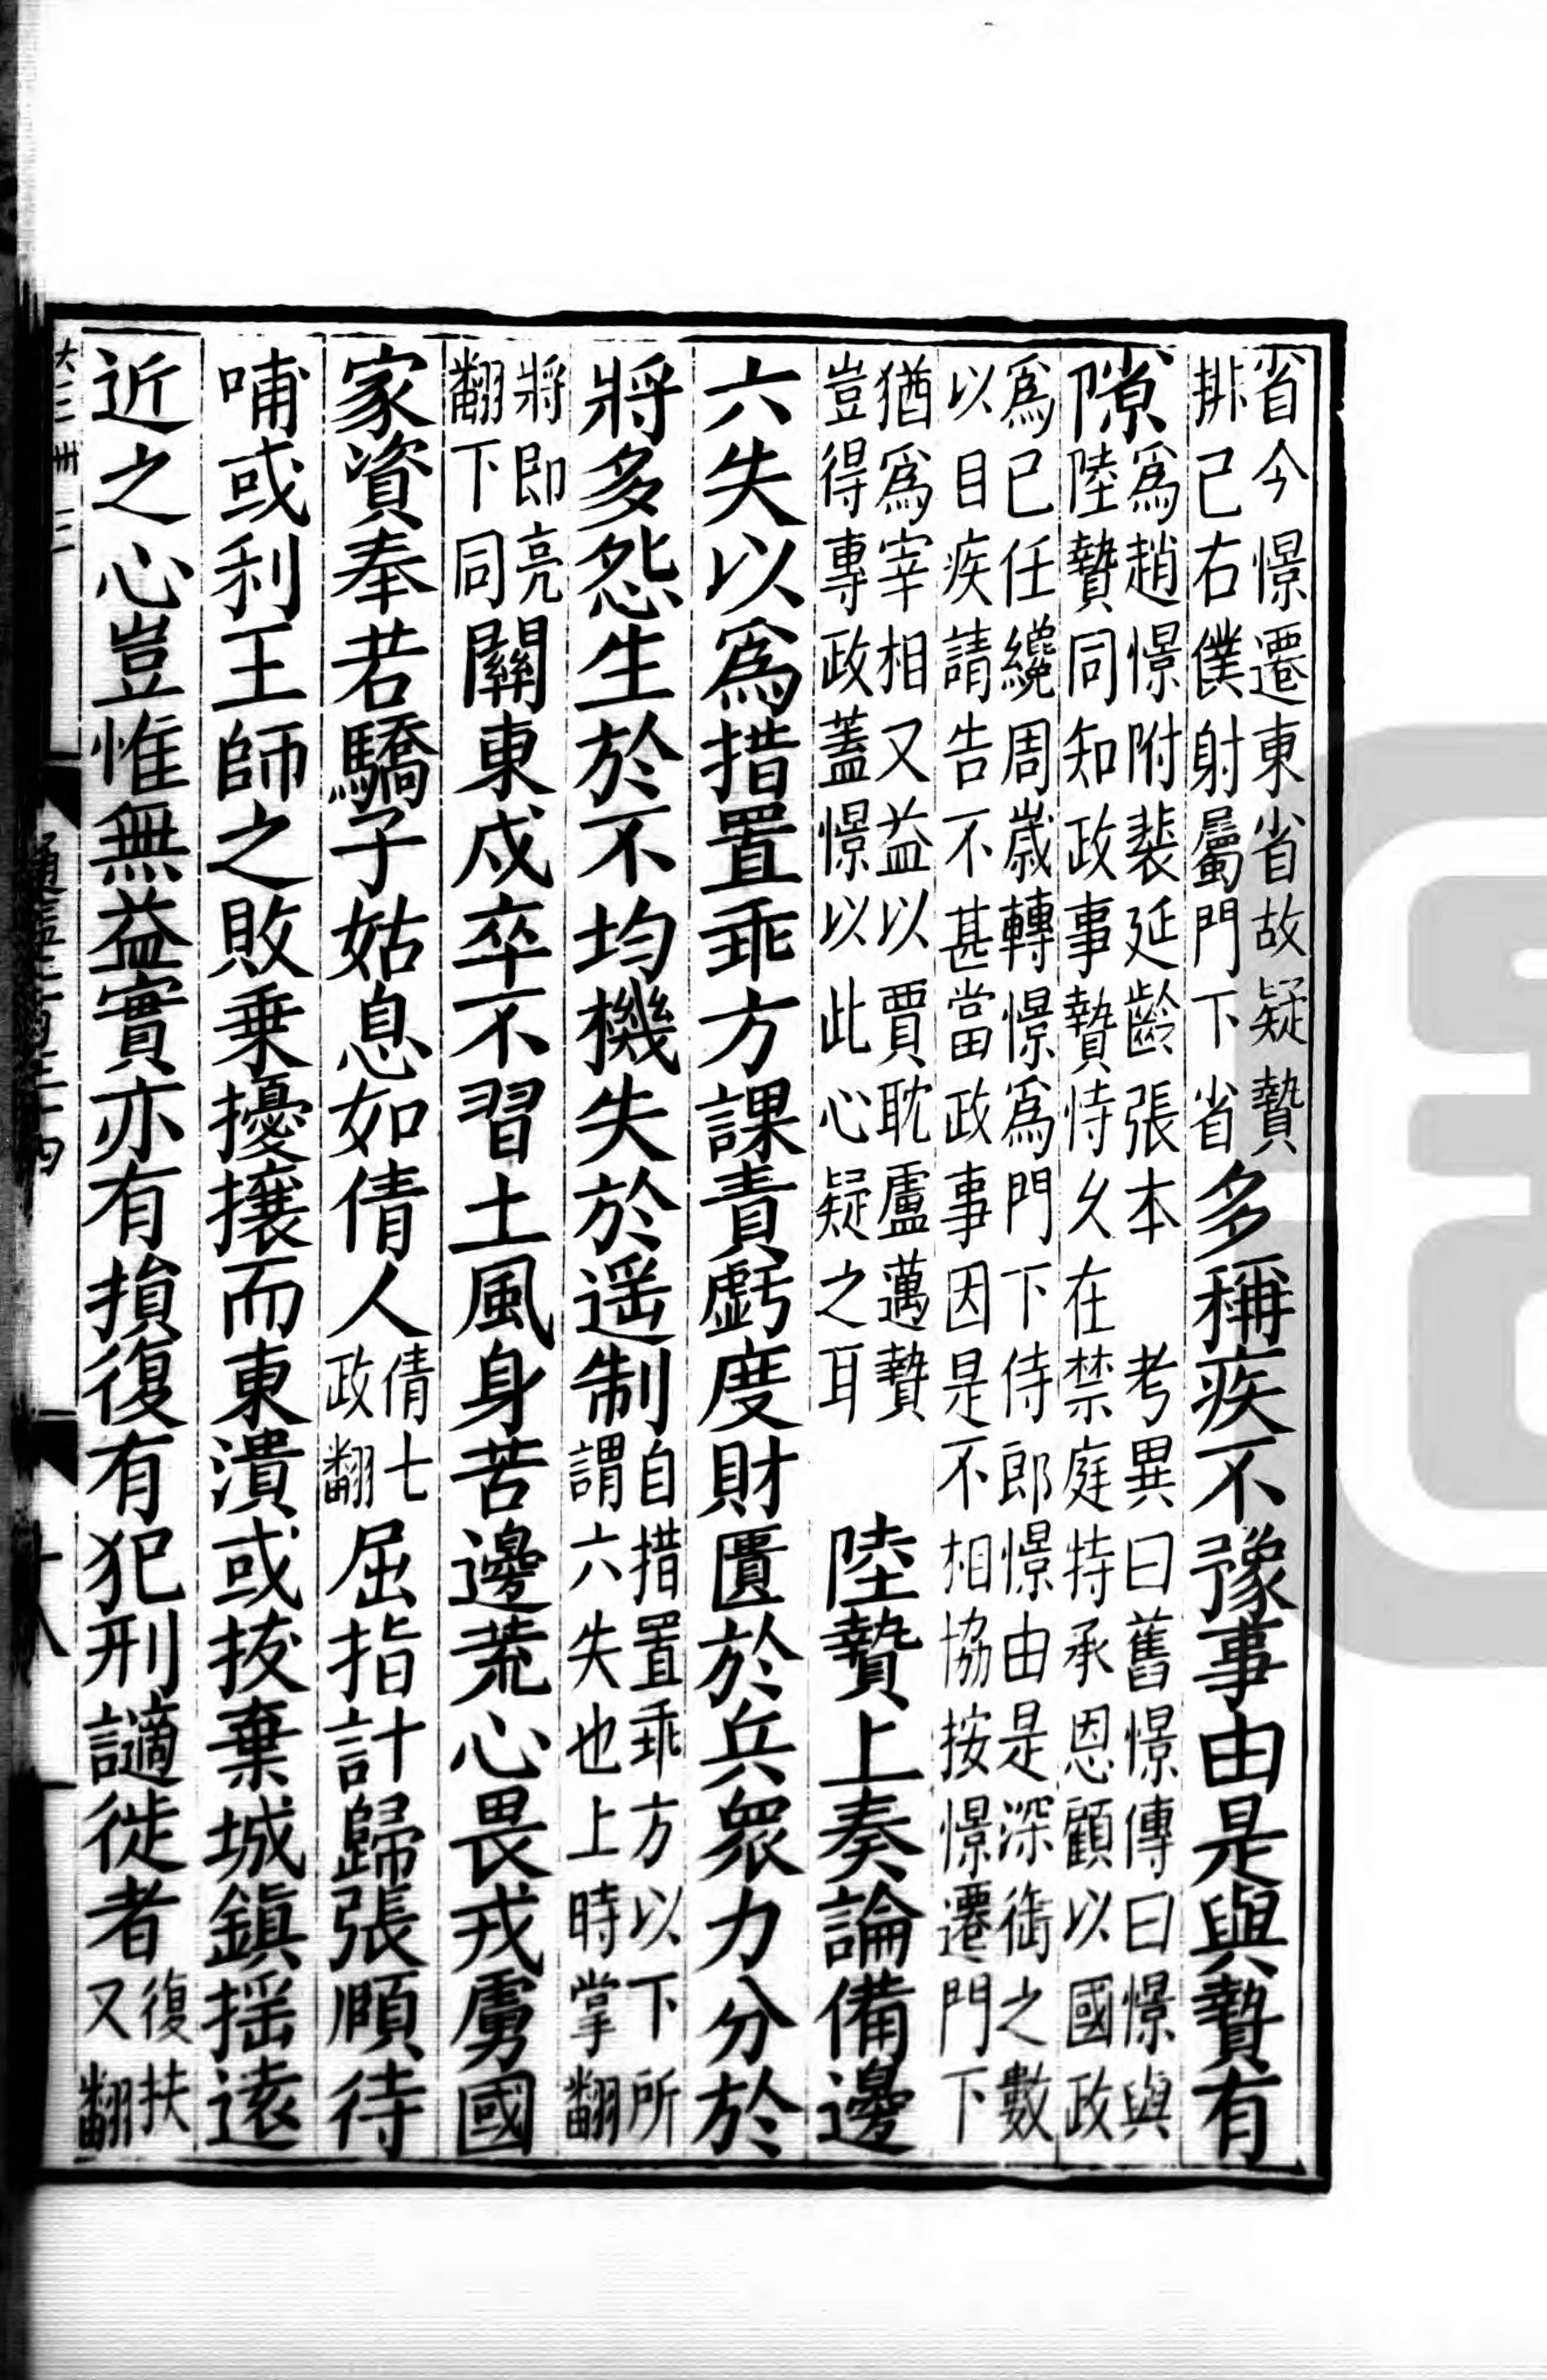 省今憬遷東省故疑贄排己右僕射屬門下省多稱疾不豫事由是與贄有
隙爲趙憬附裴延齡張本陸贄同知政事贄恃久在考異曰舊憬傳曰憬與禁庭特承恩顧以國政
爲己任纔周歲轉憬爲門下侍郎憬由是深銜之數以目疾請告不甚當政事因是不相協按憬遷門下
猶爲宰相又益以賈耽盧邁贄豈得專政蓋憬以此心疑之耳陸贄上奏論備邊
六失以爲措置乖方課責虧度財匱於兵衆力分於
將多怨生於不均機失於遥制自措置乖方以下所謂六失也上時掌翻
將即亮翻下同關東戍卒不習土風身苦邊荒心畏戎虜國
家資奉若驕子姑息如倩人倩七政翻屈指計歸張頤待
哺或利王師之敗乗擾攘而東潰或拔棄城鎮揺遠
近之心豈惟無益實亦有損復有犯刑讁徙者復扶又翻